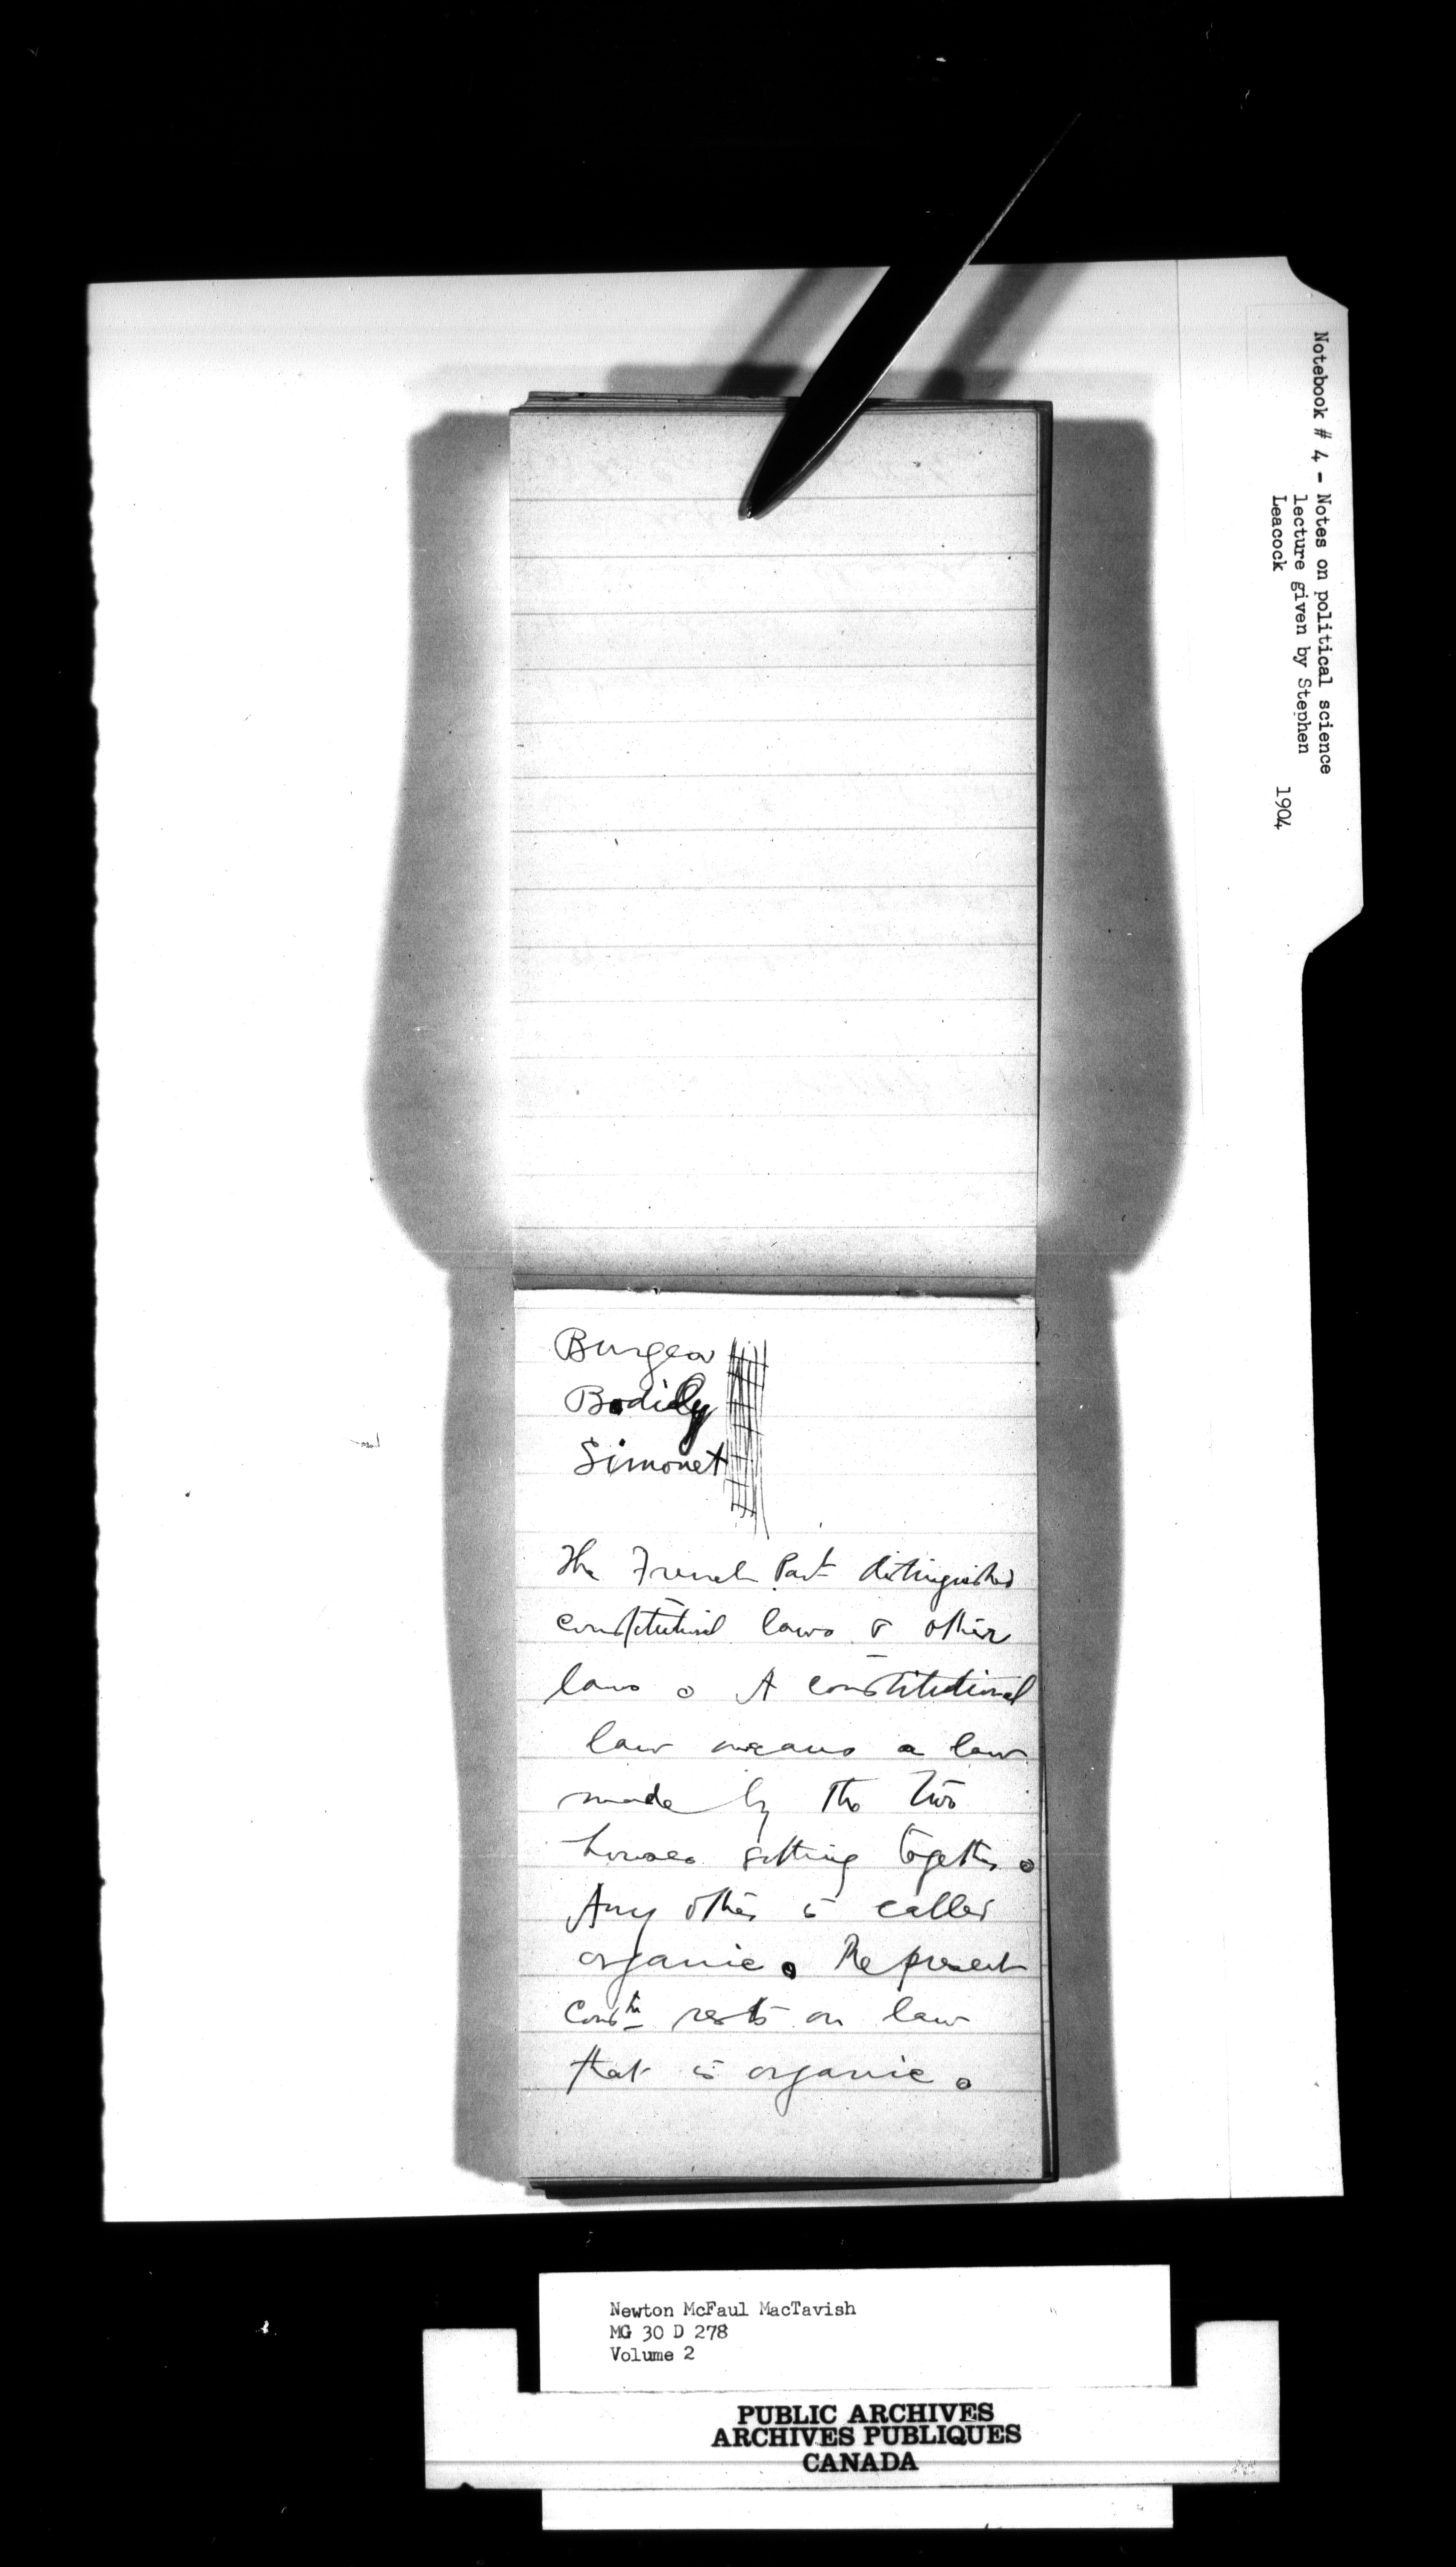 Notebook # 4 - Notes on political science
lecture given by Stephen
Leacock
1904
Burgeos
Bodily
Simonet
The French Parlt distinguishes
constitutional laws & other
laws. A constitutional
law means a law
made by the two
houses sitting together.
Any other is called
organic. The present
Constn rests on law
that is organic.
Newton McFaul MacTavish
MG 30 D 278
Volume 2
PUBLIC ARCHIVES
ARCHIVES PUBLIQUES
CANADA